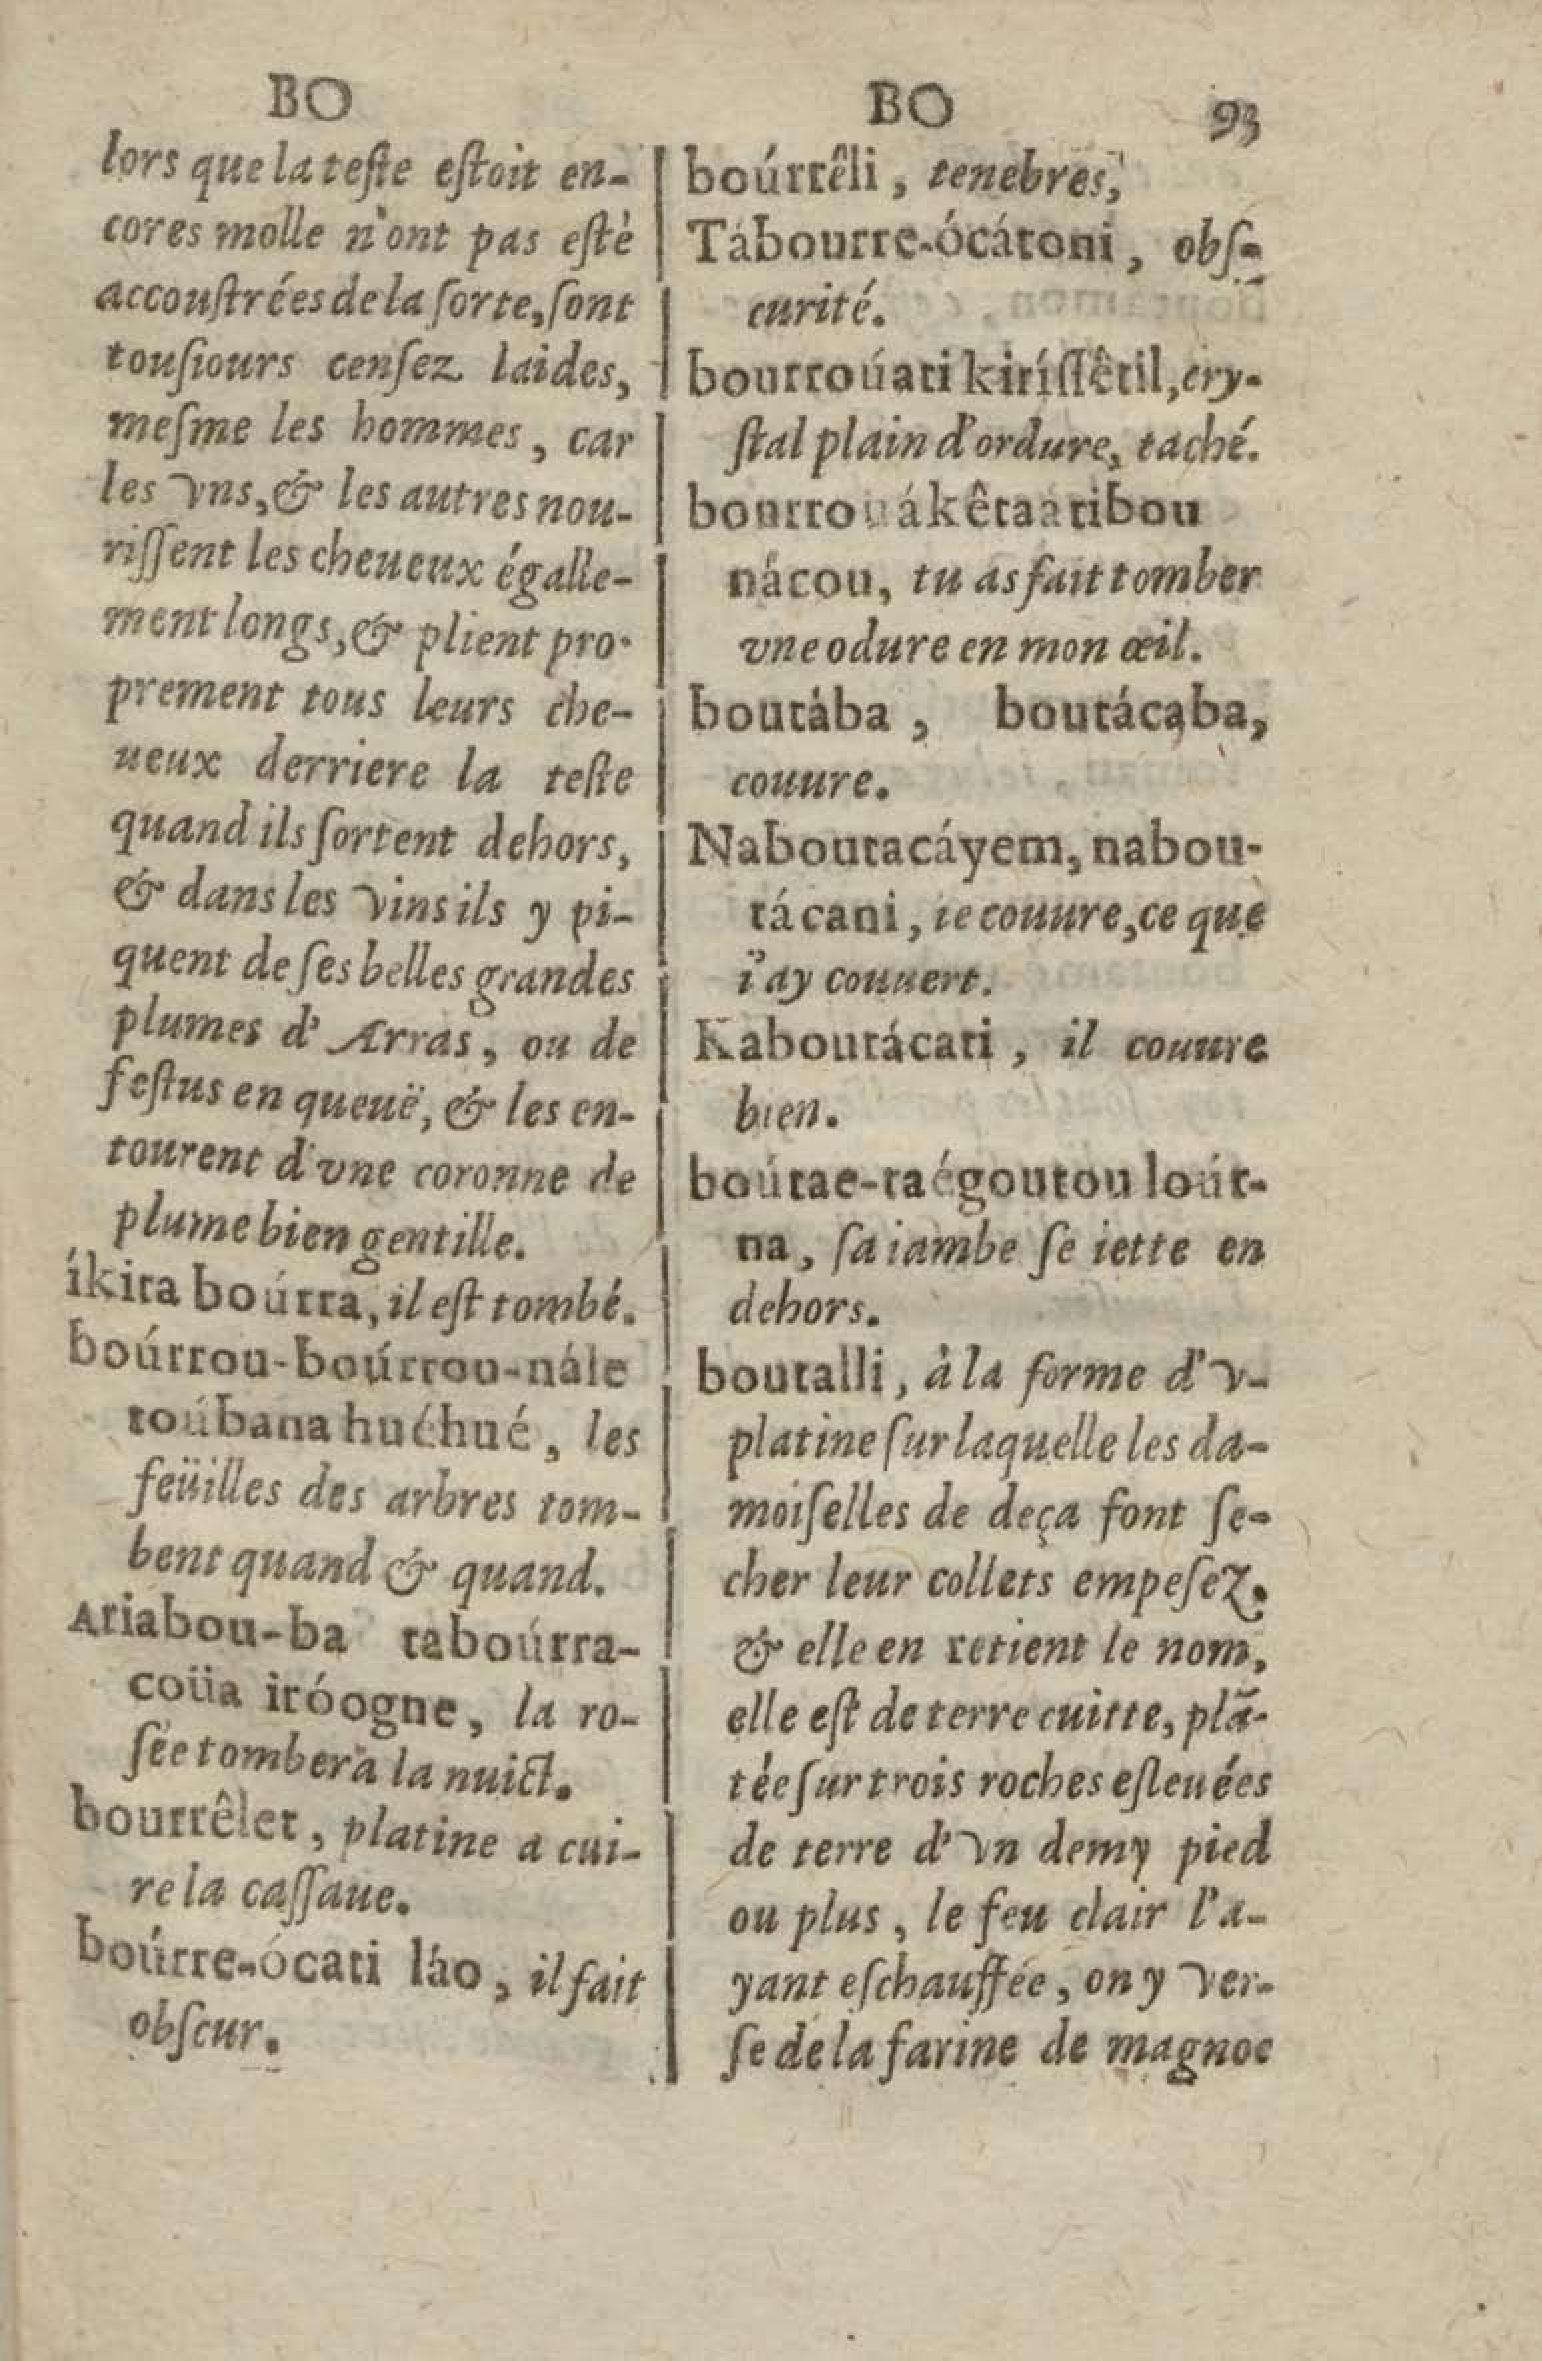 BO
lors que la teste estoit en-
cores molle n'ont pas esté
accoustrées de la sorte, sont
tousiours censez laides,
mesme les hommes, car
les vns, & les autres nou-
rissent les cheueux égalle-
ment longs, & plient pro-
prement tous leurs che-
ueux derriere la teste
quand ils sortent dehors,
& dans les vins ils y pi-
quent de ses belles grandes
plumes d'Arras, ou de
festus en queuë, & les en-
tourent d'vne coronne de
plume bien gentille.
íkira boúrra, il est tombé.
boúrrou-boúrrou-nále
toúbana huéhué, les
feüilles des arbres tom-
bent quand & quand.
Ariabou-ba taboúrra-
coüa iróogne, la ro-
sée tombera la nuict.
bourrêlet, platine a cui-
re la cassaue.
boúrre-ócati láo, il fait
obscur.
BO 93
boúrrêli, tenebres,
Tábourre-ócátoni, obs-
curité.
bourroúati kiríssêtil, cry-
stal plain d'ordure, taché.
bourrouákêtaàtibou
nácou, tu as fait tomber
vne odure en mon œil.
boutába, boutácaba,
couure.
Naboutacáyem, nabou-
tácani, ie couure, ce que
i'ay couuert.
Kaboutácati, il couure
bien.
boútae-taégoutou loút-
na, sa iambe se iette en
dehors.
boutalli, à la forme d'v-
platine sur laquelle les da-
moiselles de deça font se-
cher leur collets empesez.
& elle en retient le nom,
elle est de terre cuitte, plã-
tée sur trois roches esleuées
de terre d'vn demy pied
ou plus, le feu clair l'a-
yant eschauffée, on y ver-
se de la farine de magnoc